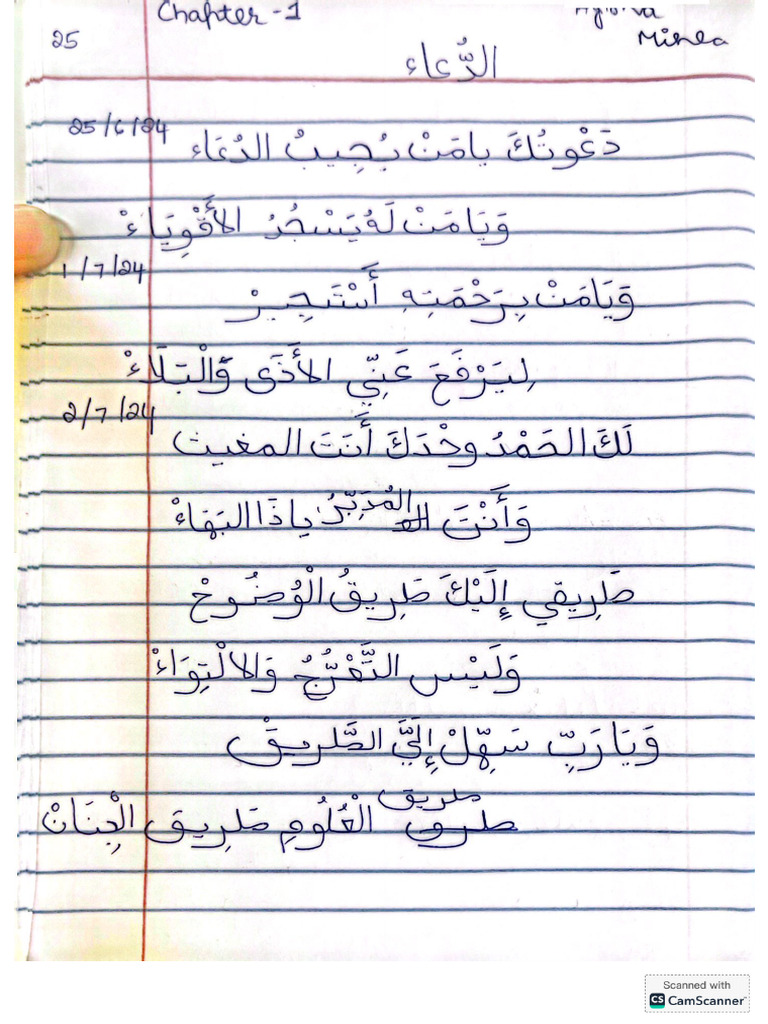 Chapter - 1
25
Mishra
الدُّعاء
25/6/24
دَعْوتُكَ يامَنْ يُجِيبُ الدُعَاء
وَيَا مَنْ لَهُ يَسْجُدُ الأَقْوِيَاءْ
1/7/24
وَيَامَنْ بِرَحْمَتِهِ أَسْتَجِيرْ
لِيَرْفَعَ عَنِّي الأَذَى وَّالْبَلَاءْ
2/7/24
لَكَ الحَمْدُ وحْدَكَ أَنتَ المغيث
وَأَنْتَ المُدَبِّرُ ياذَا البَهَاءْ
طَرِيقي إِلَيْكَ طَرِيقُ الْوُضُوحْ
وَلَيْس التَّعْرُّجُ وَالالْتِوَاءْ
وَيَارَبِّ سَهِّلْ إِلَيَّ الطَّرِيقْ
طريق الْعُلُومِ طَرِيق الْجِنَانْ
Scanned with
CS CamScanner